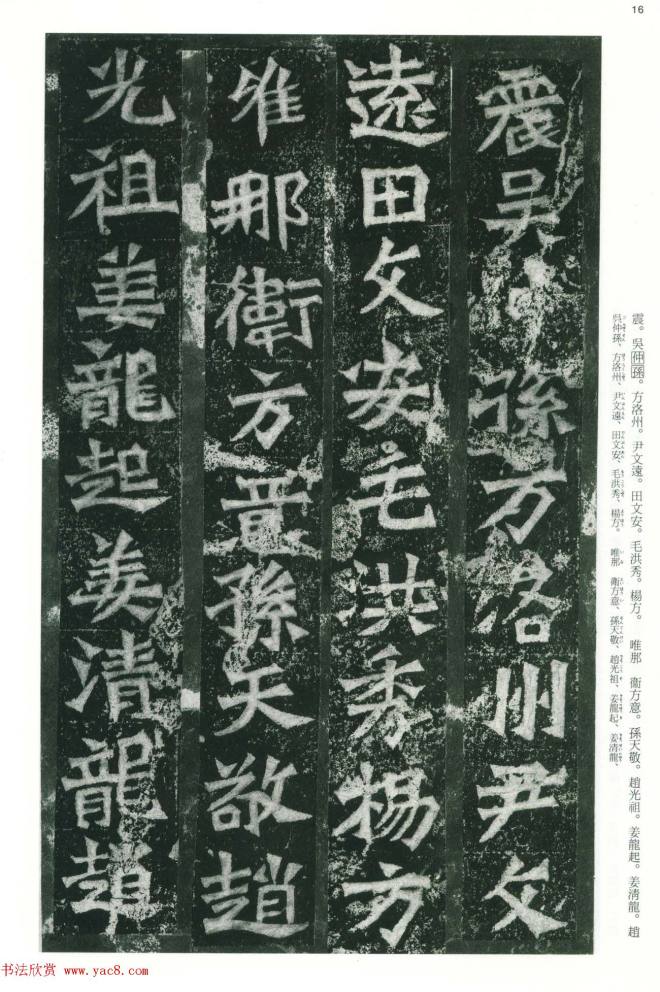 16
震吴孫方洛州尹文
遠田文安毛洪秀楊方
唯那衛方意孫天敬趙
光祖姜龍起姜清龍趙
震。吳仲孫。方洛州。尹文遠。田文安。毛洪秀。楊方。 唯那 衞方意。孫天敬。趙光祖。姜龍起。姜清龍。趙
吳仲孫、方洛州、尹文遠、田文安、毛洪秀、楊方。 唯那 衞方意、孫天敬、趙光祖、姜龍起、姜清龍、
书法欣赏 www.yac8.com